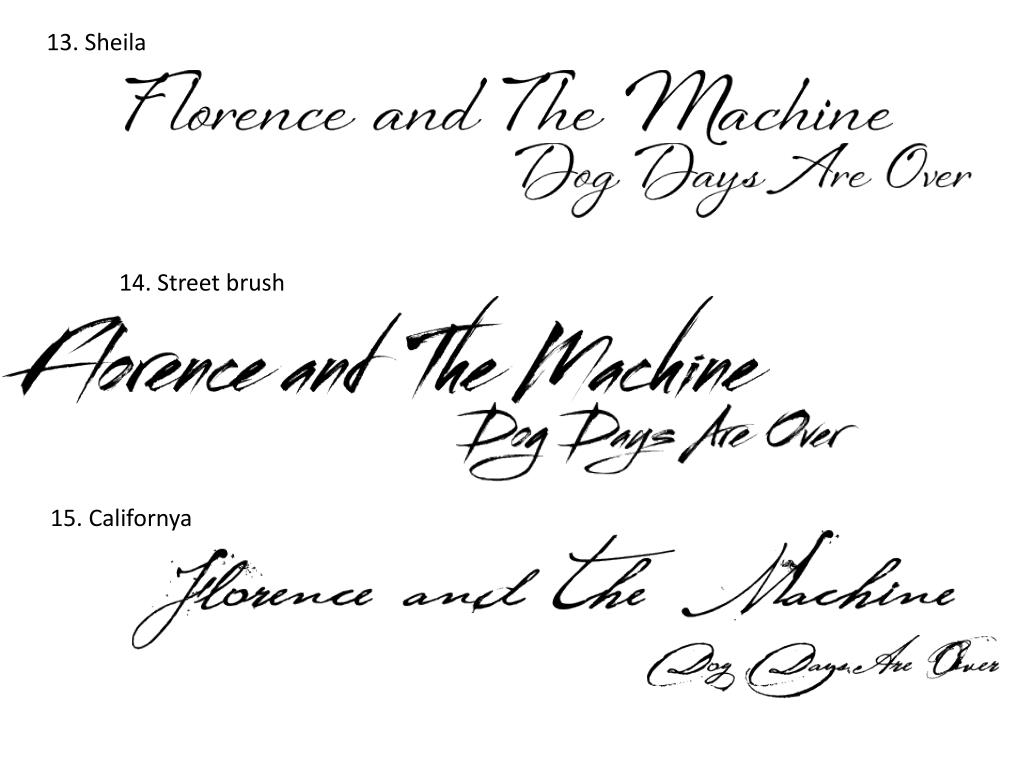 13. Sheila
Florence and The Machine
Dog Days Are Over
14. Street brush
Florence and The Machine
Dog Days Are Over
15. Californya
Florence and the Machine
Dog Days Are Over